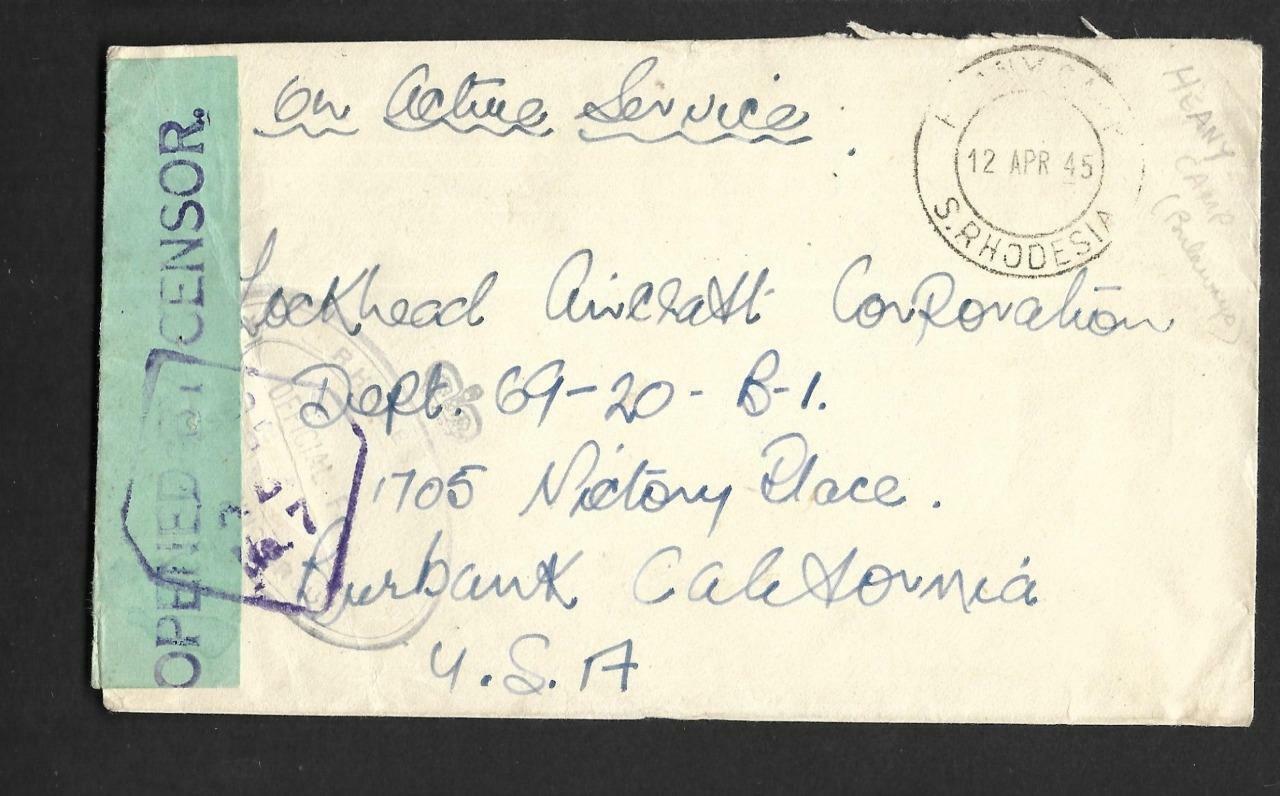 On Active Service.
12 APR 45
S. RHODESIA
HEANY
CAMP
(Bulawayo)
OPENED BY CENSOR.
Lockheed Aircraft Corporation
Dept. 69-20-B-1.
1705 Victory Place.
Burbank California
U.S.A
OFFICIAL